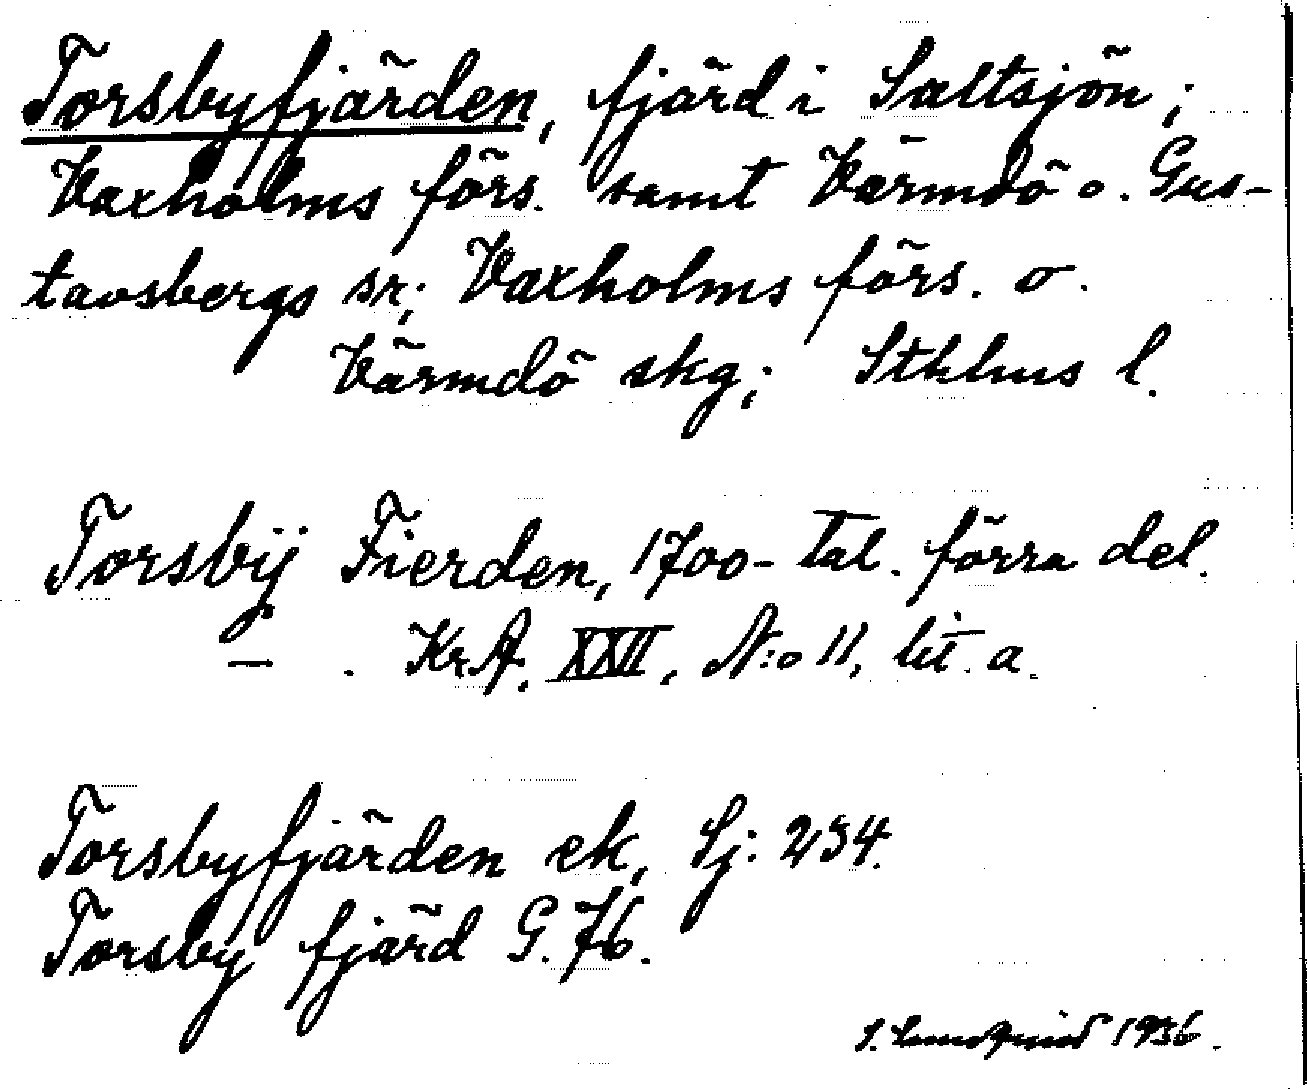 Torsbyfjärden, fjärd i Saltsjön;
Vaxholms förs. samt Värmdö o. Gus-
tavsbergs sr; Vaxholms förs. o.
Värmdö skg; Sthlms l.
Torsbÿ Fierden, 1700-tal. förra del.
— . KrA, XXII, N:o 11, lit. a.
Torsbyfjärden ek, Sj: 234.
Torsby fjärd G. 76.
S. 1936.